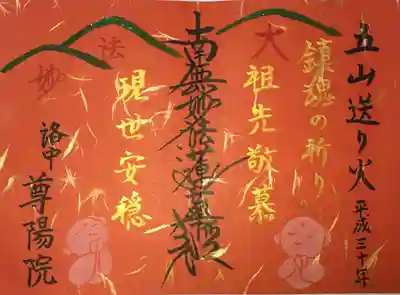 五山送り火
平成三十年
鎮魂の祈り
大
祖先敬慕
南無妙法蓮華経
法
妙
現世安穏
洛中
尊陽院